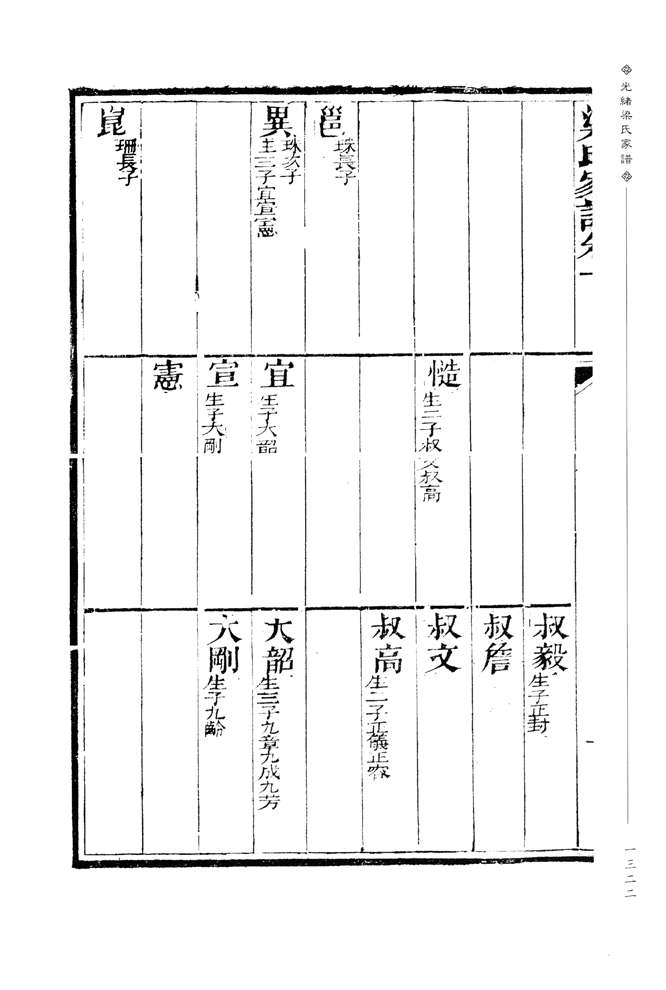 光緒梁氏家譜
一三二二
梁氏家譜卷一
邕
珠長子
異
珠次子
生三子宜宣憲
崑
珊長子
慥
生二子叔文叔高
宜
生子大韶
宣
生子大剛
憲
叔毅
生子正封
叔詹
叔文
叔高
生二子正儀正容
大韶
生三子九章九成九芳
大剛
生子九齡